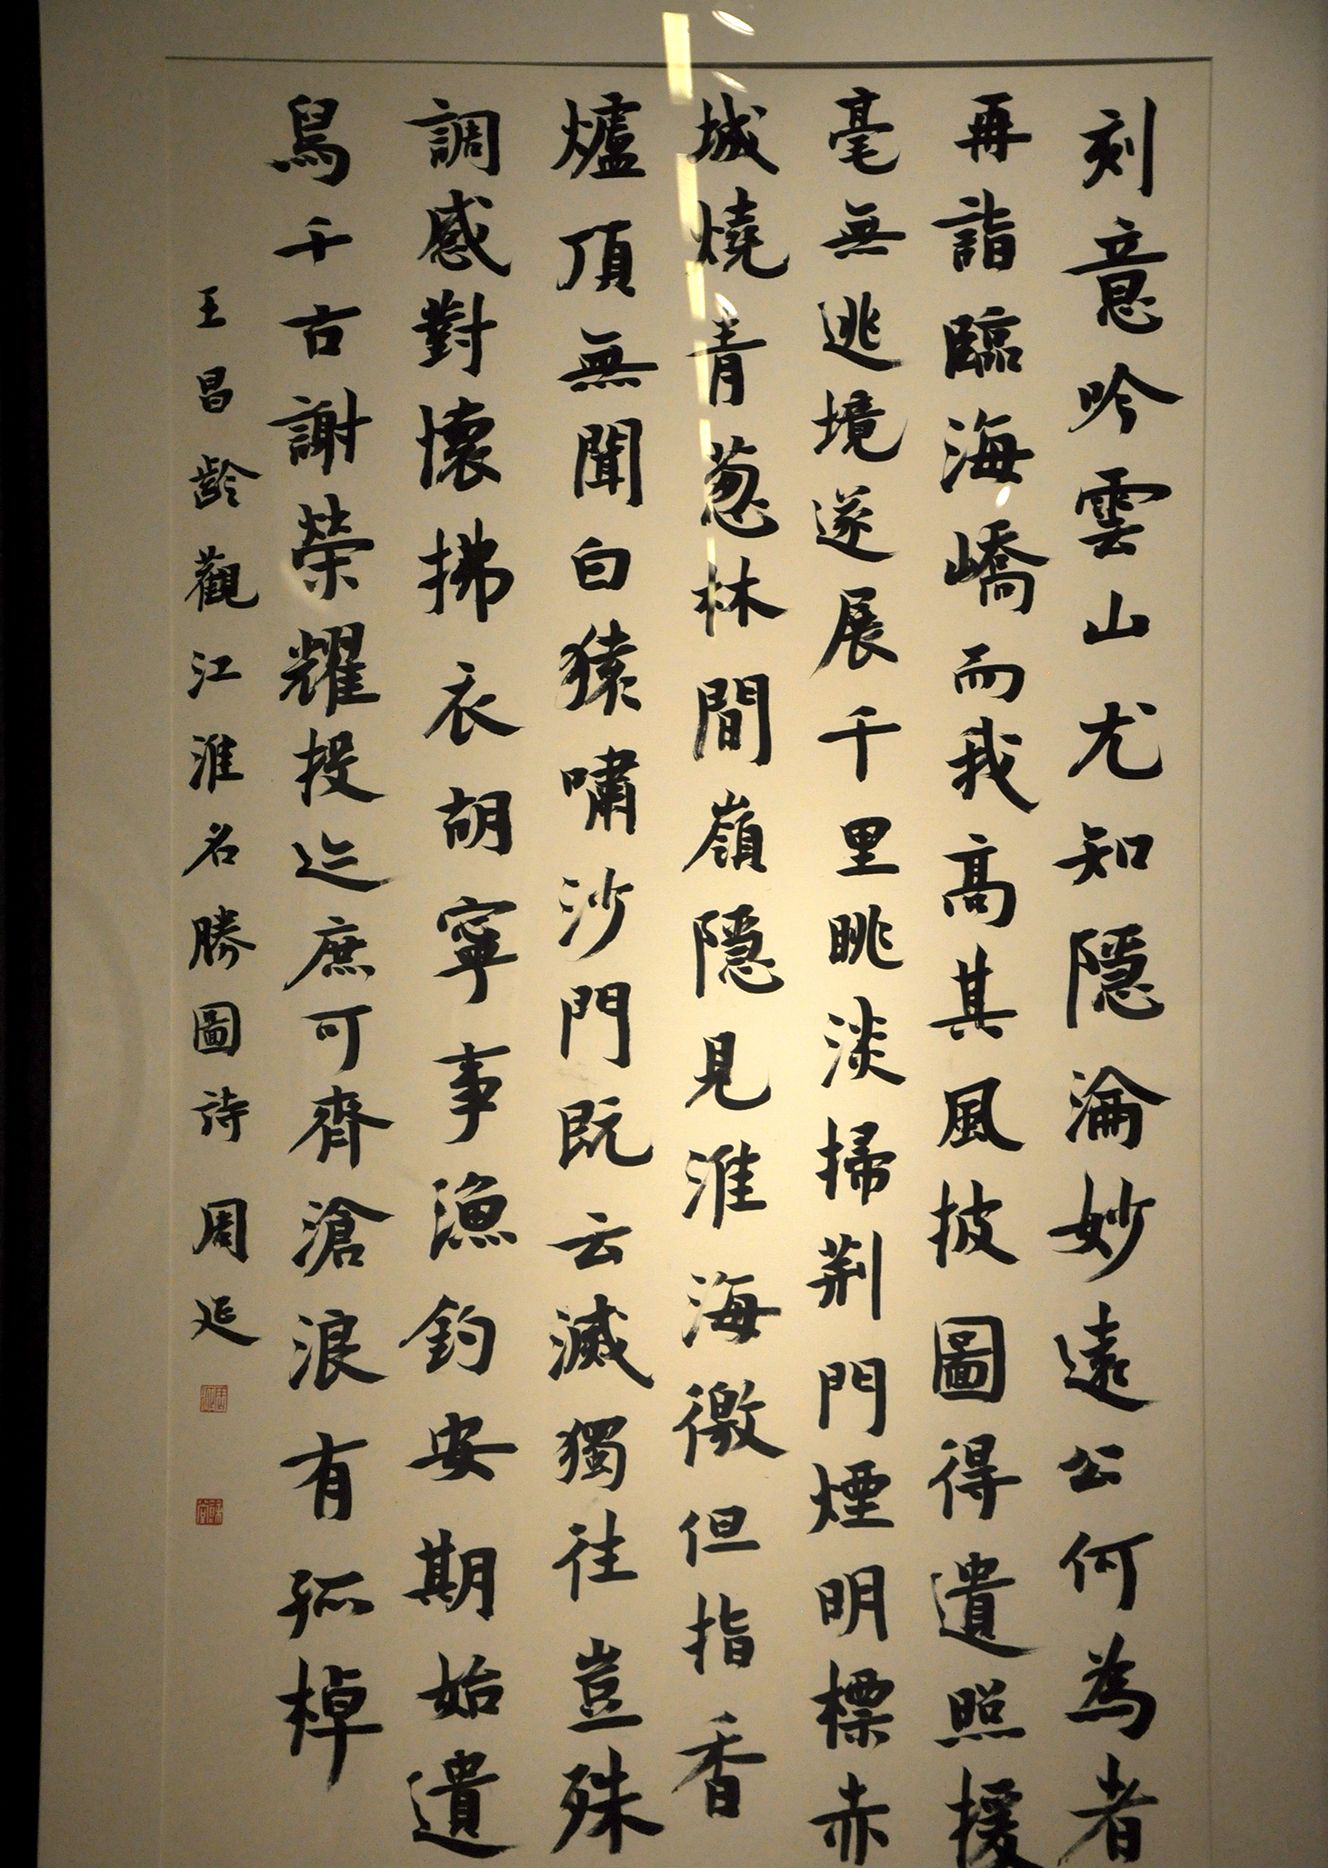 刻意吟雲山尤知隱淪妙遠公何為者
再詣臨海嶠而我高其風披圖得遺照援
毫無逃境遂展千里眺淡掃荊門煙明標赤
城燒青葱林間嶺隱見淮海徼但指香
爐頂無聞白猿嘯沙門既云滅獨往豈殊
調感對懷拂衣胡寧事漁釣安期始遺
舄千古謝榮耀投迹庶可齊滄浪有孤棹
王昌齡觀江淮名勝圖詩 周延